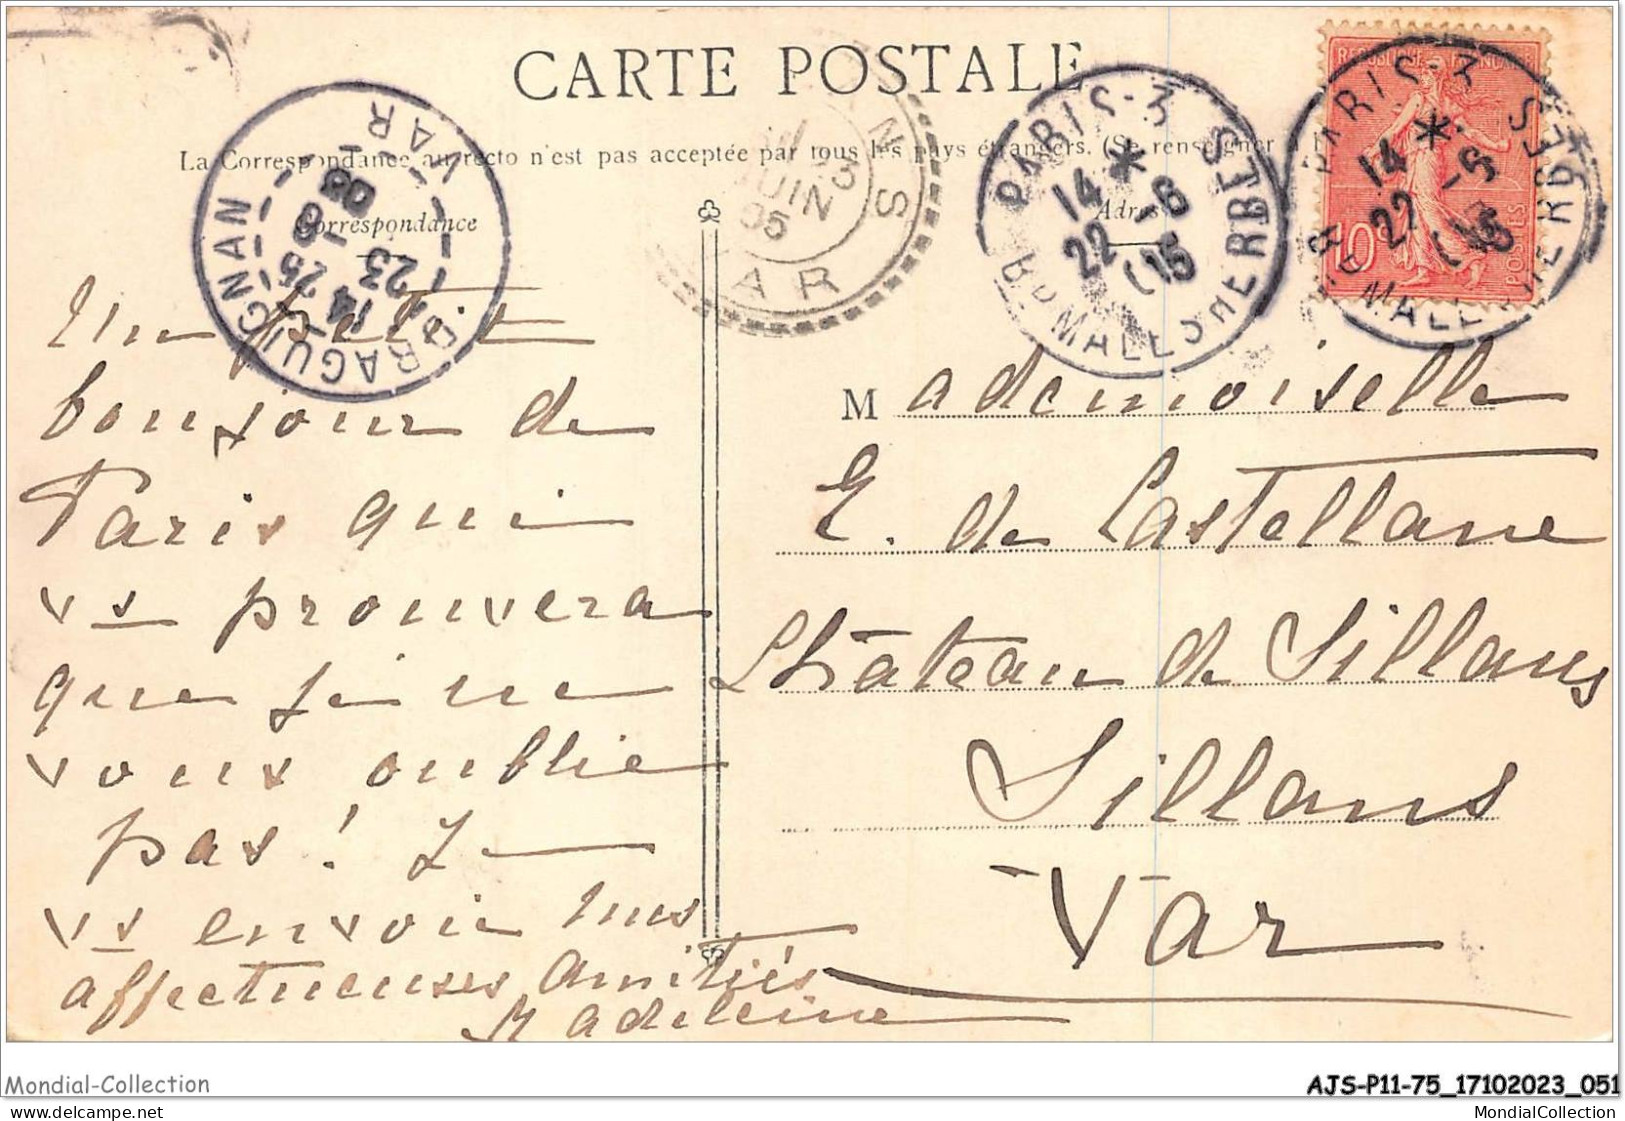 CARTE POSTALE
La Correspondance au recto n'est pas acceptée par tous les pays étrangers. (Se renseigner à
Correspondance
Adres
DRAGUIGNAN
VAR
14 25
23 - 6
05
NS
23
JUIN
05
AR
PARIS-3
14 *
22 -6
05
BD MALESHERBES
PARIS-3
14 *
22 -6
05
BD MALESHERBES
REPUBLIQUE FRANCAISE
10c
POSTES
Un petit
bonjour de
Paris qui
vs prouvera
que je ne
vous oublie
pas! Je
vs envoie mes
affectueuses amitiés
Madeleine
Mademoiselle
E. de Castellane
Château de Sillans
Sillans
Var
Mondial-Collection
AJS-P11-75_17102023_051
MondialCollection
MondialCollection